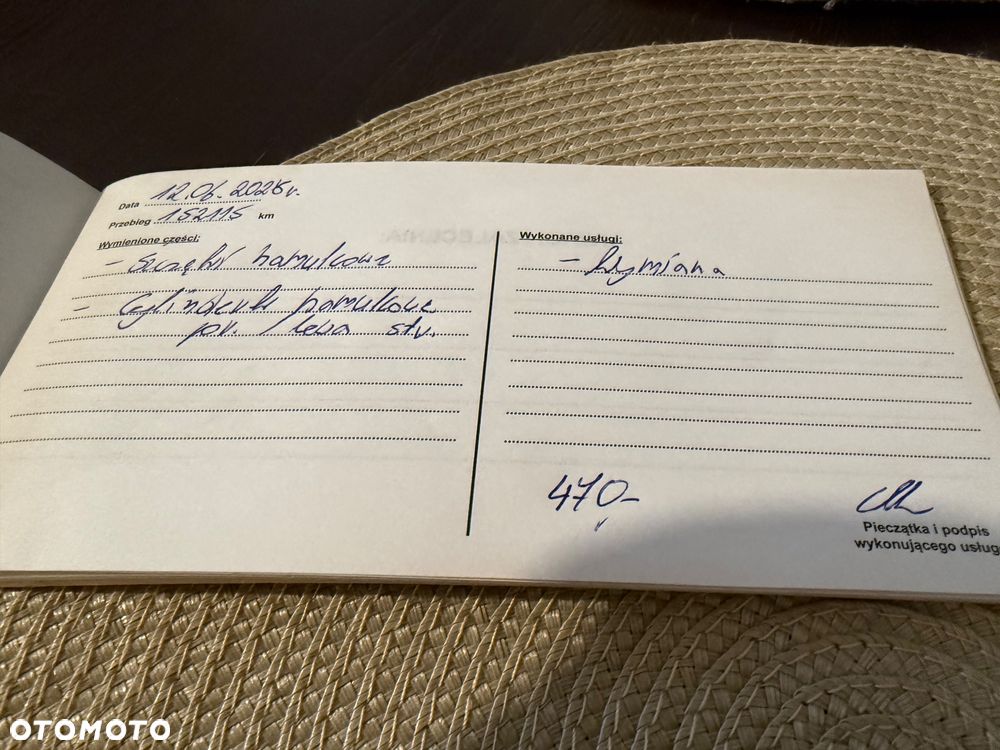 Data 12.06.2025r.
Przebieg 152115 km
Wymienione części:
- Szczęki hamulcowe
- Cylinderki hamulcowe
pr. / lewa str.
Wykonane usługi:
- Wymiana
470,-
Pieczątka i podpis
wykonującego usług
OTOMOTO